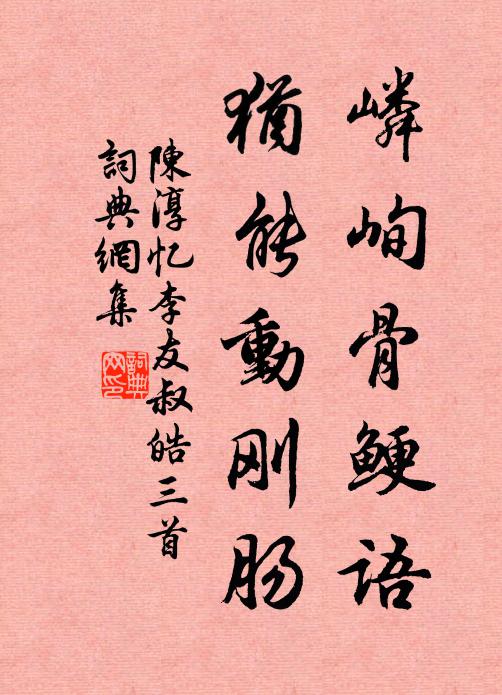 嶙峋骨鲠语
犹能動刚肠
陳淳忆李友叔皓三首
詞典網集
詞典網印